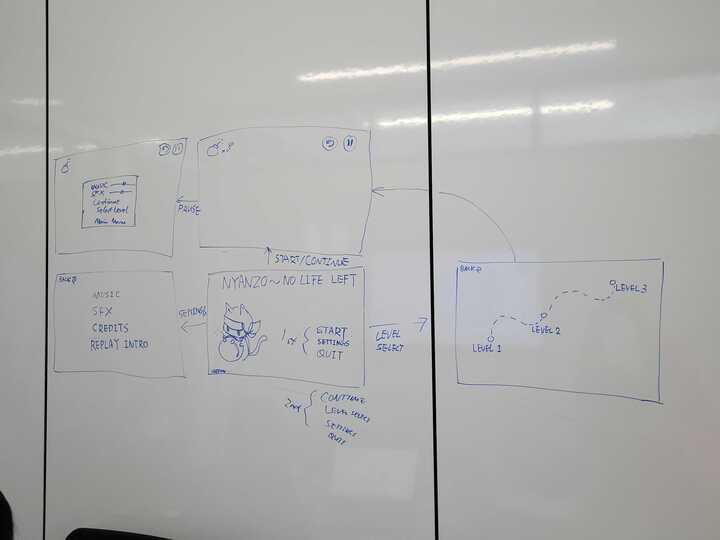 MUSIC
SFX
Continue
Select Level
Main Menu
PAUSE
START/CONTINUE
BACK
MUSIC
SFX
CREDITS
REPLAY INTRO
SETTINGS
NYANZO~NO LIFE LEFT
START
SETTINGS
QUIT
CONTINUE
LEVEL SELECT
SETTINGS
QUIT
LEVEL
SELECT
BACK
LEVEL 1
LEVEL 2
LEVEL 3